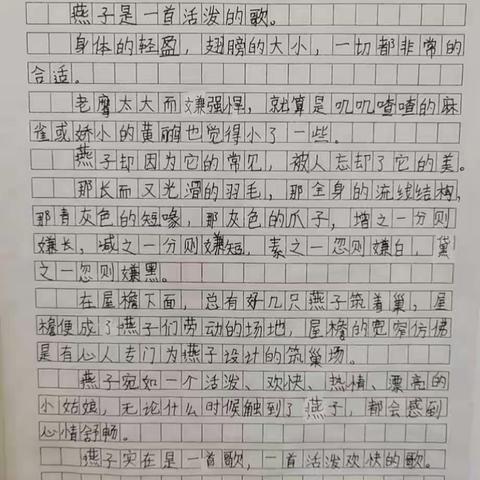 燕子是一首活泼的歌。
身体的轻盈，翅膀的大小，一切都非常的
合适。
老鹰太大而嫌强悍，就算是叽叽喳喳的麻
雀或娇小的黄鹂也觉得小了一些。
燕子却因为它的常见，被人忘却了它的美。
那长而又光滑的羽毛，那全身的流线结构，
那青灰色的短喙，那灰色的爪子，增之一分则
嫌长，减之一分则嫌短，素之一忽则嫌白，黛
之一忽则嫌黑。
在屋檐下面，总有好几只燕子筑着巢，屋
檐便成了燕子们劳动的场地，屋檐的宽窄仿佛
是有心人专门为燕子设计的筑巢场。
燕子宛如一个活泼、欢快、热情、漂亮的
小姑娘，无论什么时候触到了燕子，都会感到
心情舒畅。
燕子实在是一首歌，一首活泼欢快的歌。